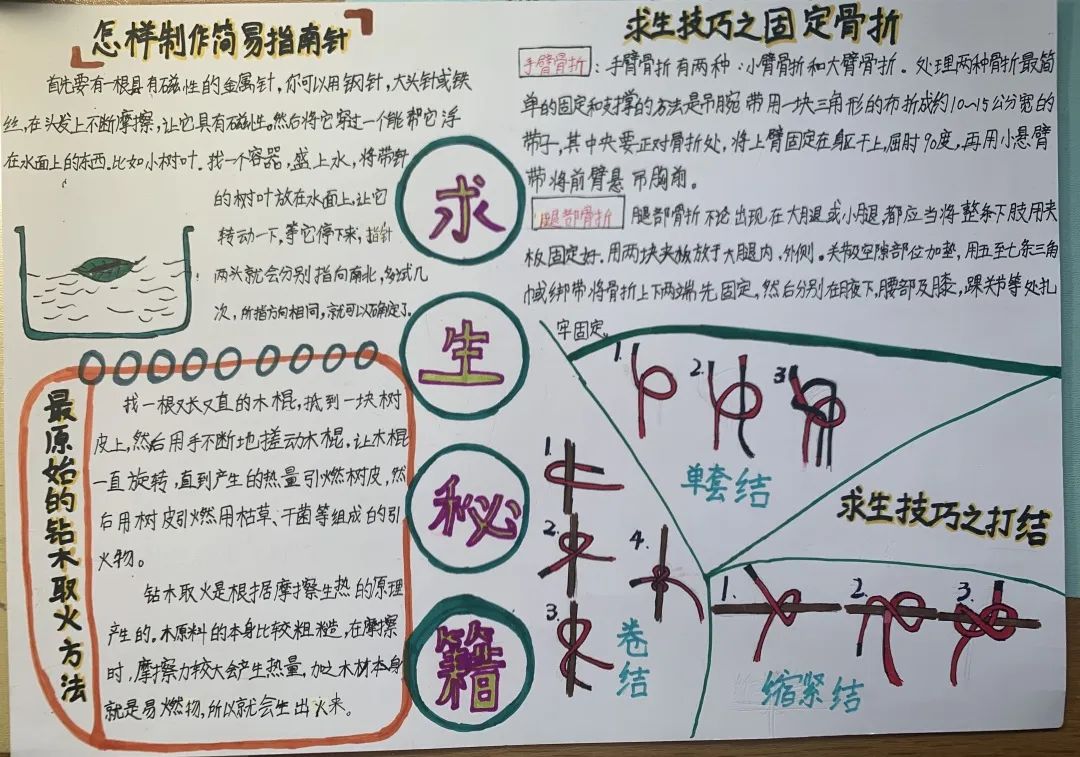 怎样制作简易指南针
首先要有一根具有磁性的金属针，你可以用钢针，大头针或铁
丝，在头发上不断摩擦，让它具有磁性。然后将它穿过一个能帮它浮
在水面上的东西。比如小树叶。找一个容器，盛上水，将带针
的树叶放在水面上，让它
转动一下，等它停下来，指针
两头就会分别指向南北，多试几
次，所指方向相同，就可以确定了。
最原始的钻木取火方法
找一根又长又直的木棍，抵到一块树
皮上，然后用手不断地搓动木棍，让木棍
一直旋转，直到产生的热量引燃树皮，然
后用树皮引燃用枯草、干菌等组成的引
火物。
钻木取火是根据摩擦生热的原理
产生的。木原料的本身比较粗糙，在摩擦
时，摩擦力较大会产生热量，加之木材本身
就是易燃物，所以就会生出火来。
求
生
秘
籍
求生技巧之固定骨折
手臂骨折：手臂骨折有两种：小臂骨折和大臂骨折。处理两种骨折最简
单的固定和支撑的方法是吊腕带用一块三角形的布折成约10~15公分宽的
带子，其中央要正对骨折处，将上臂固定在躯干上，屈肘90度，再用小悬臂
带将前臂悬吊胸前。
腿部骨折 腿部骨折不论出现在大腿或小腿都应当将整条下肢用夹
板固定好。用两块夹板放于大腿内、外侧。关节及空隙部位加垫，用五至七条三角
巾或绑带将骨折上下两端先固定，然后分别在腋下，腰部及膝，踝关节等处扎
牢固定。
1.
2.
3
单套结
求生技巧之打结
1.
2.
3.
4.
卷结
1.
2.
3.
缩紧结